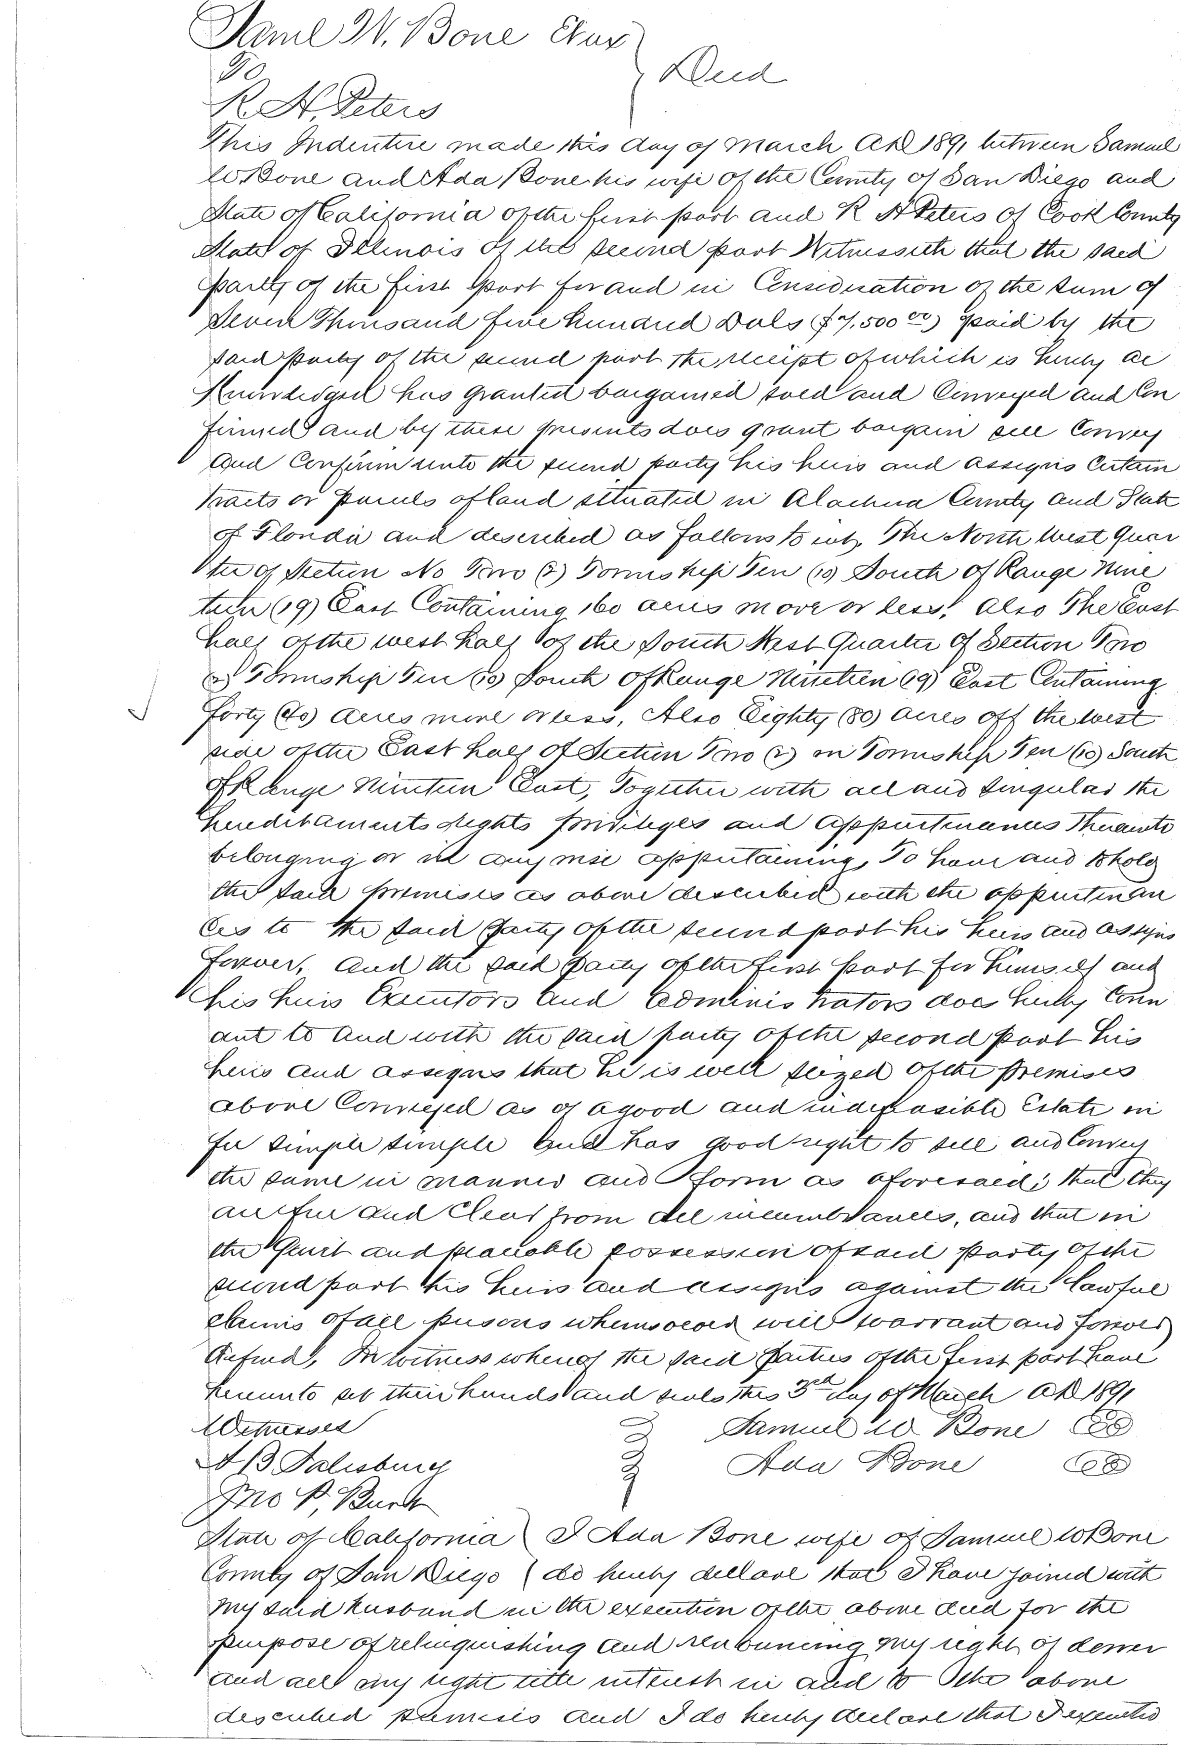 Saml W. Bone Etux
To } Deed
R. H. Peters
This Indenture made this day of March AD 1891 between Samuel
W Bone and Ada Bone his wife of the County of San Diego and
State of California of the first part and R H Peters of Cook County
State of Illinois of the second part Witnesseth that the said
party of the first part for and in Consideration of the sum of
Seven Thousand five hundred Dols ($7,500 00) paid by the
said party of the second part the receipt of which is hereby ac
Knowledged has granted bargained sold and Conveyed and Con
firmed and by these presents does grant bargain sell Convey
and Confirm unto the second party his heirs and assigns Certain
tracts or parcels of land situated in Alachua County and State
of Florida and described as follows to wit, The North West Quar
ter of Section No Two (2) Township Ten (10) South of Range Nine
teen (19) East Containing 160 acres more or less, Also The East
half of the west half of the South West Quarter of Section Two
(2) Township Ten (10) South of Range Nineteen (19) East Containing
forty (40) acres more or less, Also Eighty (80) acres off the west
side of the East half of Section Two (2) in Township Ten (10) South
of Range Nineteen East, Together with all and singular the
hereditaments rights privileges and appurtenances thereunto
belonging or in any wise appertaining, To have and to hold
the said premises as above described with the appurtenan
ces to the said party of the second part his heirs and assigns
forever, And the said party of the first part for himself and
his heirs Executors and administrators does hereby Coven
ant to and with the said party of the second part his
heirs and assigns that he is well seized of the premises
above Conveyed as of a good and indefeasible Estate in
fee simple simple and has good right to sell and Convey
the same in manner and form as aforesaid; that they
are free and Clear from all incumbrances, and that in
the Quiet and peaceable possession of said party of the
second part his heirs and assigns against the lawful
claims of all persons whomsoever will warrant and forever
defend, In witness whereof the said parties of the first part have
hereunto set their hands and seals this 3rd day of March AD 1891
Witnesses Samuel W Bone
A B Salisbury Ada Bone
Jno P, Burt
State of California } I Ada Bone wife of Samuel W Bone
County of San Diego } do hereby declare that I have joined with
my said husband in the execution of the above deed for the
purpose of relinquishing and renouncing my right of dower
and all my right title interest in and to the above
described premises and I do hereby declare that I executed